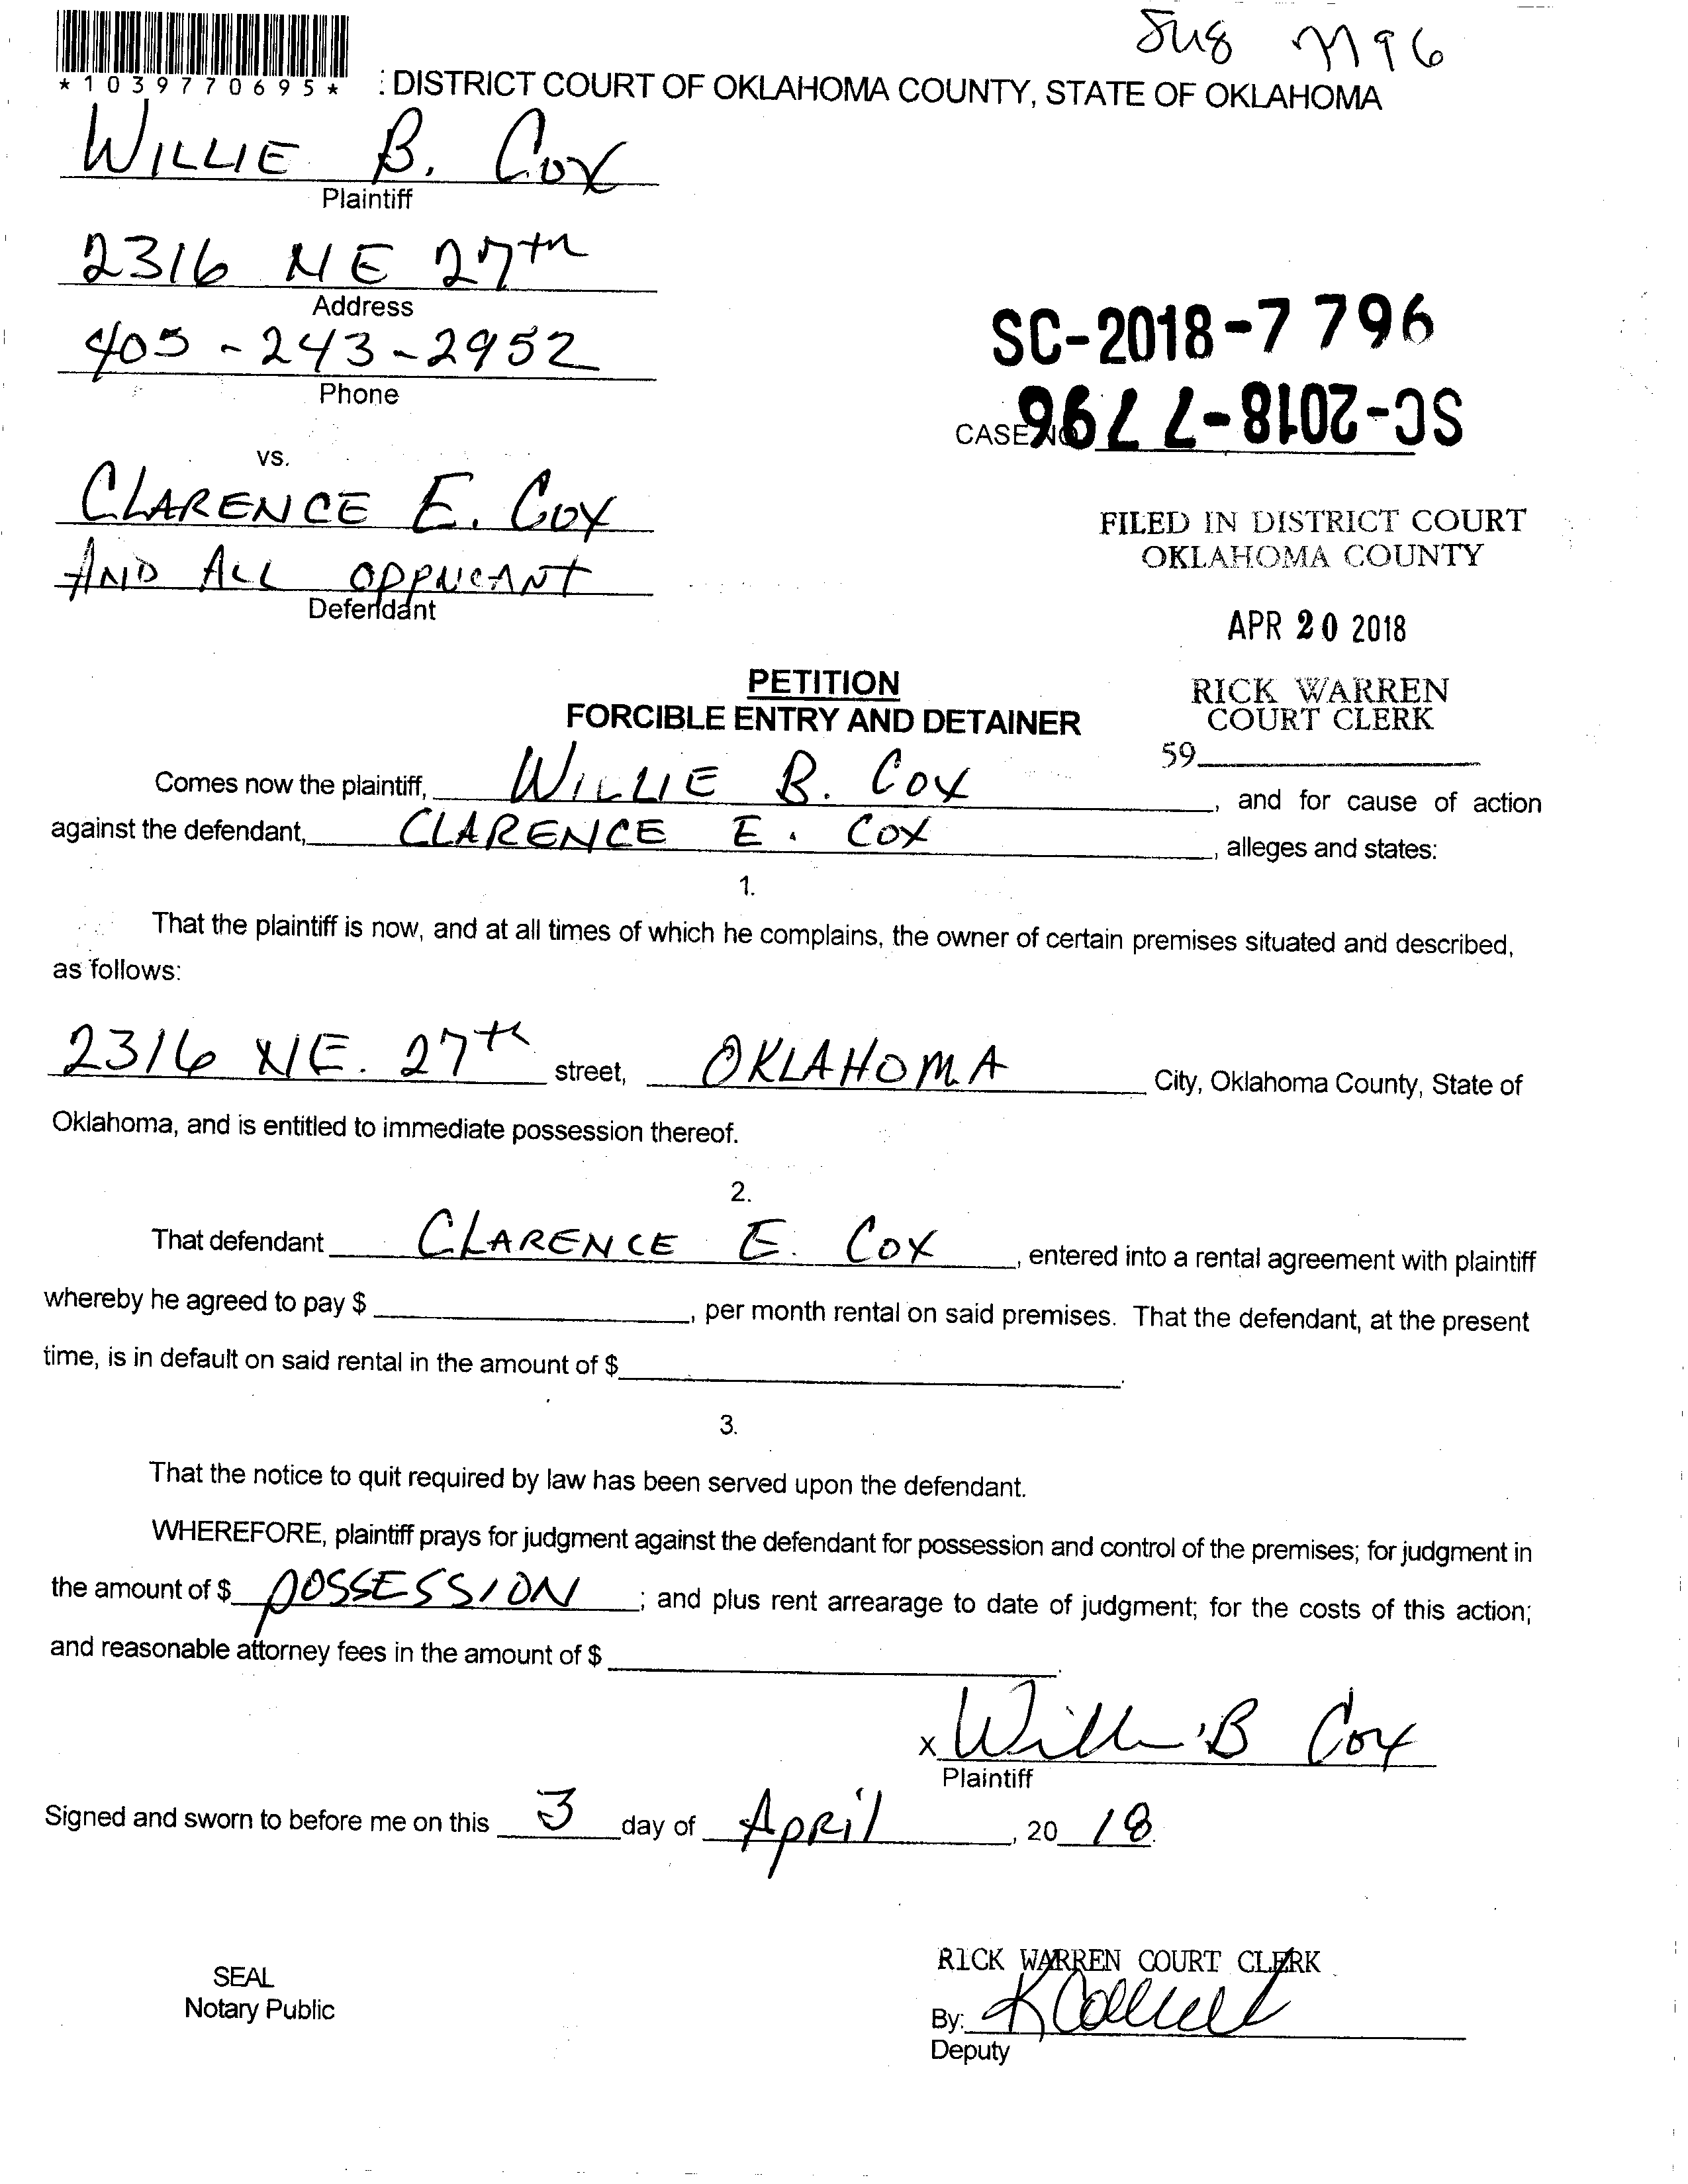 7796
*1039770695* : DISTRICT COURT OF OKLAHOMA COUNTY, STATE OF OKLAHOMA
WILLIE B. COX
Plaintiff
2316 NE 27th
Address
405-243-2952
Phone
SC-2018-7 796
SC-2018-7 796
CASE NO
vs.
CLARENCE E. COX
AND ALL
Defendant
FILED IN DISTRICT COURT
OKLAHOMA COUNTY
APR 20 2018
RICK WARREN
COURT CLERK
59
PETITION
FORCIBLE ENTRY AND DETAINER
Comes now the plaintiff, WILLIE B. COX, and for cause of action
against the defendant, CLARENCE E. COX, alleges and states:
1.
That the plaintiff is now, and at all times of which he complains, the owner of certain premises situated and described,
as follows:
2316 NE. 27th street, OKLAHOMA City, Oklahoma County, State of
Oklahoma, and is entitled to immediate possession thereof.
2.
That defendant CLARENCE E. COX, entered into a rental agreement with plaintiff
whereby he agreed to pay $ , per month rental on said premises. That the defendant, at the present
time, is in default on said rental in the amount of $ .
3.
That the notice to quit required by law has been served upon the defendant.
WHEREFORE, plaintiff prays for judgment against the defendant for possession and control of the premises; for judgment in
the amount of $ POSSESSION ; and plus rent arrearage to date of judgment; for the costs of this action;
and reasonable attorney fees in the amount of $ .
x Willie B Cox
Plaintiff
Signed and sworn to before me on this 3 day of April, 20 18.
SEAL
Notary Public
RICK WARREN COURT CLERK
By:
Deputy